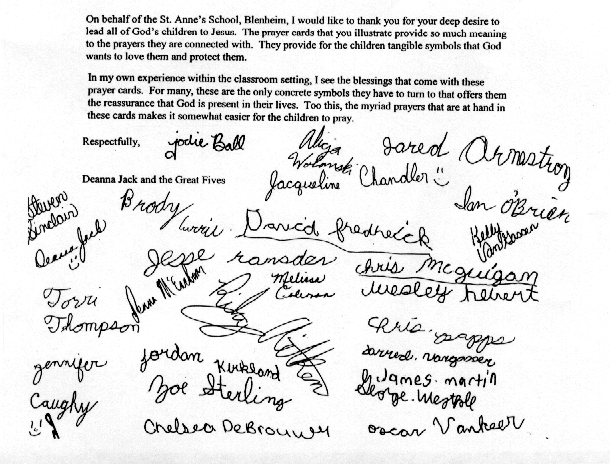 On behalf of the St. Anne's School, Blenheim, I would like to thank you for your deep desire to
lead all of God's children to Jesus. The prayer cards that you illustrate provide so much meaning
to the prayers they are connected with. They provide for the children tangible symbols that God
wants to love them and protect them.
In my own experience within the classroom setting, I see the blessings that come with these
prayer cards. For many, these are the only concrete symbols they have to turn to that offers them
the reassurance that God is present in their lives. Too this, the myriad prayers that are at hand in
these cards makes it somewhat easier for the children to pray.
Respectfully,
Jodie Ball
Alicja
Jared Armstrong
Deanna Jack and the Great Fives
Jacqueline Chandler
Steven
Sinclair
Brody
Currie
Ian O'Brien
David fredrick
Kelly
Deanna Jack
Jesse ransden
chris mcguigan
Melissa
Coleman
wesley hebert
Torri
Thompson
Riley
chris. papps
Jennifer
Caughy
jordan Kirkland
James. martin
Zoë Sterling
George.
Chelsea DeBrouwer
oscar Vankeer